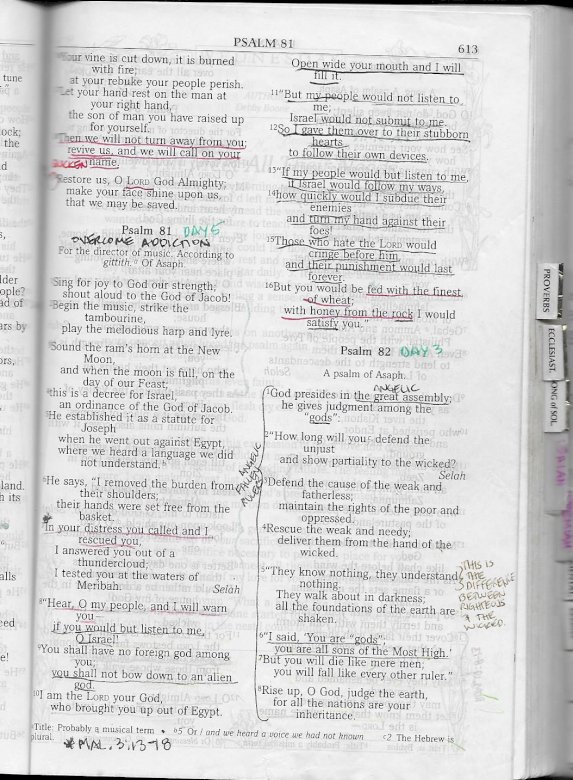 PSALM 81
613
Your vine is cut down, it is burned
with fire;
at your rebuke your people perish.
Let your hand rest on the man at
your right hand,
the son of man you have raised up
for yourself.
Then we will not turn away from you;
revive us, and we will call on your
name.
Restore us, O LORD God Almighty;
make your face shine upon us,
that we may be saved.
Psalm 81 DAY 5
OVERCOME ADDICTION
For the director of music. According to
gittith.ᵃ Of Asaph.
Sing for joy to God our strength;
shout aloud to the God of Jacob!
Begin the music, strike the
tambourine,
play the melodious harp and lyre.
Sound the ram's horn at the New
Moon,
and when the moon is full, on the
day of our Feast;
this is a decree for Israel,
an ordinance of the God of Jacob.
He established it as a statute for
Joseph
when he went out against Egypt,
where we heard a language we did
not understand.ᵇ
He says, "I removed the burden from
their shoulders;
their hands were set free from the
basket.
In your distress you called and I
rescued you,
I answered you out of a
thundercloud;
I tested you at the waters of
Meribah. Selah
8"Hear, O my people, and I will warn
you—
if you would but listen to me,
O Israel!
9You shall have no foreign god among
you;
you shall not bow down to an alien
god.
10I am the LORD your God,
who brought you up out of Egypt.
Open wide your mouth and I will
fill it.
11"But my people would not listen to
me;
Israel would not submit to me.
12So I gave them over to their stubborn
hearts
to follow their own devices.
13"If my people would but listen to me,
if Israel would follow my ways,
14how quickly would I subdue their
enemies
and turn my hand against their
foes!
15Those who hate the LORD would
cringe before him,
and their punishment would last
forever.
16But you would be fed with the finest
of wheat;
with honey from the rock I would
satisfy you."
Psalm 82 DAY 3
A psalm of Asaph.
ANGELIC
1God presides in the great assembly;
he gives judgment among the
"gods":
2"How long will you defend the
unjust
and show partiality to the wicked?
Selah
3Defend the cause of the weak and
fatherless;
maintain the rights of the poor and
oppressed.
4Rescue the weak and needy;
deliver them from the hand of the
wicked.
5"They know nothing, they understand
nothing.
They walk about in darkness;
all the foundations of the earth are
shaken.
6"I said, 'You are "gods";
you are all sons of the Most High.'
7But you will die like mere men;
you will fall like every other ruler."
8Rise up, O God, judge the earth,
for all the nations are your
inheritance.
ANGELIC
FALLEN
THIS IS
THE
DIFFERENCE
BETWEEN
RIGHTEOUS
& THE
WICKED
ᵃTitle: Probably a musical term • ᵇ5 Or / and we heard a voice we had not known ᶜ2 The Hebrew is
plural.
*MAL. 3:13-18
PROVERBS
ECCLESIAST.
SONG of SOL.